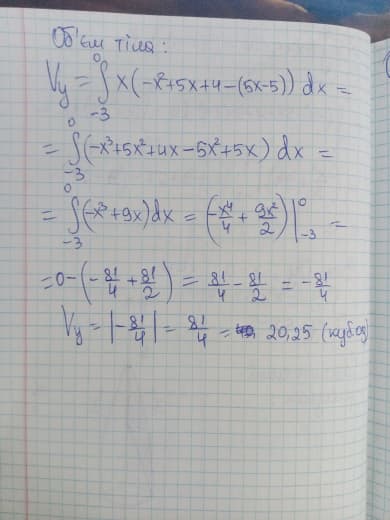 Об'єм тіла:
Vy = ∫₋₃⁰ x(-x²+5x+4-(5x-5)) dx =
= ∫₋₃⁰ (-x³+5x²+4x-5x²+5x) dx =
= ∫₋₃⁰ (-x³+9x)dx = (-x⁴/4 + 9x²/2)|₋₃⁰ =
=0-(-81/4 + 81/2) = 81/4 - 81/2 = -81/4
Vy = |-81/4| = 81/4 = 20,25 (куб.од)